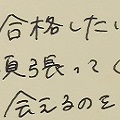 合格したい
頑張って
会えるのを